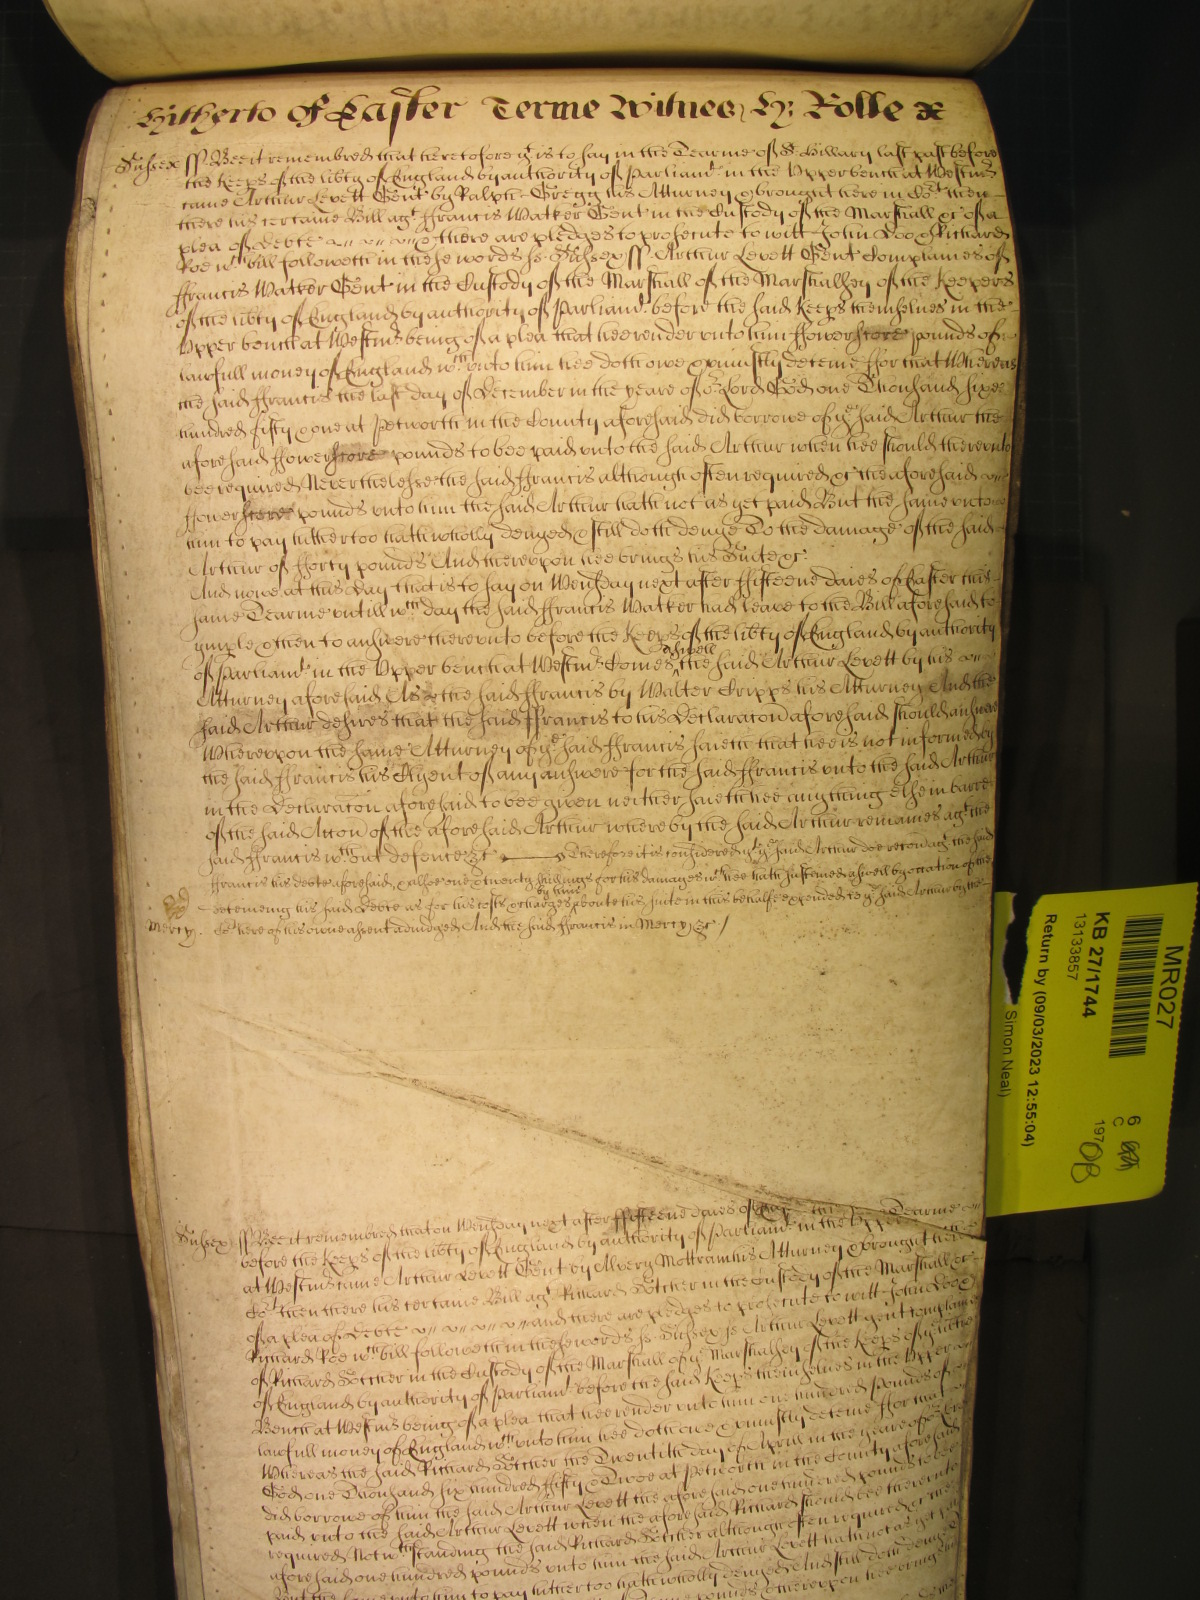 Hitherto of Easter Terme Witnes, H: Rolle &c
Sussex ss. Bee it remembred that heretofore yt is to say in the Tearme of St Hillary last past before
the Keeps of the libty of England by authority of Parliamt. in the Upper bench at Westmr
came Arthur Levett Gent by Ralph Gregg his Atturney & brought here in Cort then
there his certaine Bill agt ffrancis Watker Gent in the Custody of the Marshall &c of a
plea of Debte & there are pledges to prosecute to witt John Doo & Richard
Roe wch bill followeth in these words ss. Sussex ss. Arthur Levett Gent Complaines of
ffrancis Watker Gent in the Custody of the Marshall of the Marshalsey of the Keepers
of the libty of England by authority of Parliamt. before the said Keeps themselves in the
Upper bench at Westmr being of a plea that hee render unto him ffowerscore pounds of
lawfull money of England wch unto him hee doth owe & unjustly deteine ffor that Whereas
the said ffrancis the last day of December in the yeare of or Lord God one Thousand sixe
hundred fifty & one at Petworth in the County aforesaid did borrowe of ye said Arthur the
aforesaid ffowerscore pounds to bee paid unto the said Arthur when hee should thereunto
bee required Neverthelesse the said ffrancis although often required &c the aforesaid
ffowerscore pounds unto him the said Arthur hath not as yet paid But the same unto
him to pay hithertoo hath wholly denyed & still doth denye To the damage of the said
Arthur of fforty pounds And thereupon hee brings his Suite &c.
And nowe at this Day that is to say on Wensday next after ffifteene daies of Easter this
same Tearme untill wch day the said ffrancis Watker had leave to the Bill aforesaid to
imple & then to answere thereunto before the Keeps of the libty of England by authority
of Parliamt. in the Upper bench at Westmr Comes aswell the said Arthur Levett by his
Atturney aforesaid As the said ffrancis by Walter Cripps his Atturney And the
said Arthur desires that the said ffrancis to his Declaracon aforesaid should answere
Whereupon the same Atturney of ye said ffrancis saieth that hee is not informed by
the said ffrancis his Clyent of any answere for the said ffrancis unto the said Arthur
in the Declaracon aforesaid to bee given neither saieth hee anything else in barre
of the said Accon of the aforesaid Arthur whereby the said Arthur remaines agt the
said ffrancis wthout defence &c Therefore it is considered yt ye said Arthur doe recov agt. the said
ffrancis his debte aforesaid & alsoe one & twenty shillings for his damages wch hee hath susteined aswell by occation of the
deteineing his said Debte as for his costs & charges by him aboute his suite in this behalfe expended to ye said Arthur by the
Mercy. Cort here of his owne assent adiudged And the said ffrancis in Mercy &c /
Sussex ss Bee it remembred that on Wensday next after ffifteene daies of Tearme
before the Keeps of the libty of England by authority of Parliamt in the Upper
at Westmr came Arthur Levett Gent by Alvery Mottram his Atturney & brought here
Cort then there his certaine Bill agt Richard in the Custody of the Marshall &c
of a plea of Debte and there are pledges to prosecute to witt John Doo
Richard Roe wch bill followeth in these words ss. Sussex ss Arthur Levett gent complaines
of Richard in the Custody of the Marshall of ye Marshalsey of the Keeps of ye
of England by authority of Parliamt before the said Keeps themselves in the Upper
Bench at Westmr being of a plea that hee render unto him one hundred pounds of
lawfull money of England wch unto him hee doth owe & unjustly deteine ffor that
Whereas the said Richard the Twentith day of Aprill in the yeare of or
God one Thousand six hundred ffifty & Twoe at Petworth in the County aforesaid
did borrowe of him the said Arthur Levett the aforesaid one hundred pounds to bee
paid unto the said Arthur Levett when the aforesaid Richard should bee thereunto
required Notwthstanding the said Richard although often required &c the
aforesaid one hundred pounds unto him the said Arthur Levett hath not as yet
But the same unto him to pay hithertoo hath wholly denyed And still doth
pounds & thereupon hee brings
MR027
KB 27/1744
13133857
Return by (09/03/2023 12:55:04)
Simon Neal)
6
C
197